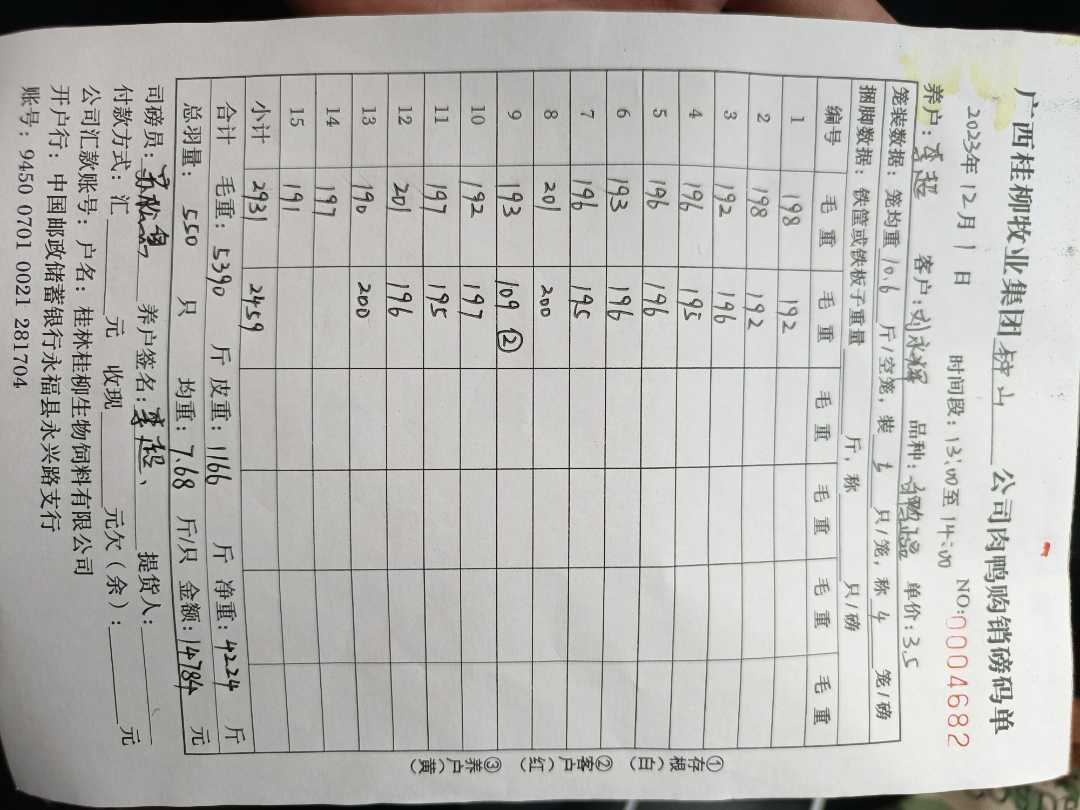 广西桂柳牧业集团钟山公司肉鸭购销磅码单
2023年12月1日 时间段：13:00至14:00 NO:0004682
养户：李超 客户：刘永辉 品种： 单价：3.5
笼装数据：笼均重10.6斤/空笼，装5只/笼，称4笼/磅
捆脚数据：铁筐或铁板子重量 斤，称 只/磅
编号 毛重 毛重 毛重 毛重 毛重 毛重
1 198 192
2 198 192
3 192 196
4 196 195
5 196 196
6 193 196
7 196 195
8 201 200
9 193 109 ②
10 192 197
11 197 195
12 201 196
13 190 200
14 197
15 191
小计 2931 2459
合计 毛重：5390斤 皮重：1166斤 净重：4224斤
总羽量：550只 均重：7.68斤/只 金额：14784元
司磅员： 养户签名：李超 提货人：
付款方式：汇 元 收现 元欠（余）： 元
公司汇款账号：户名：桂林桂柳生物饲料有限公司
开户行：中国邮政储蓄银行永福县永兴路支行
账号：9450 0701 0021 281704
①存根（白） ②客户（红） ③养户（黄）